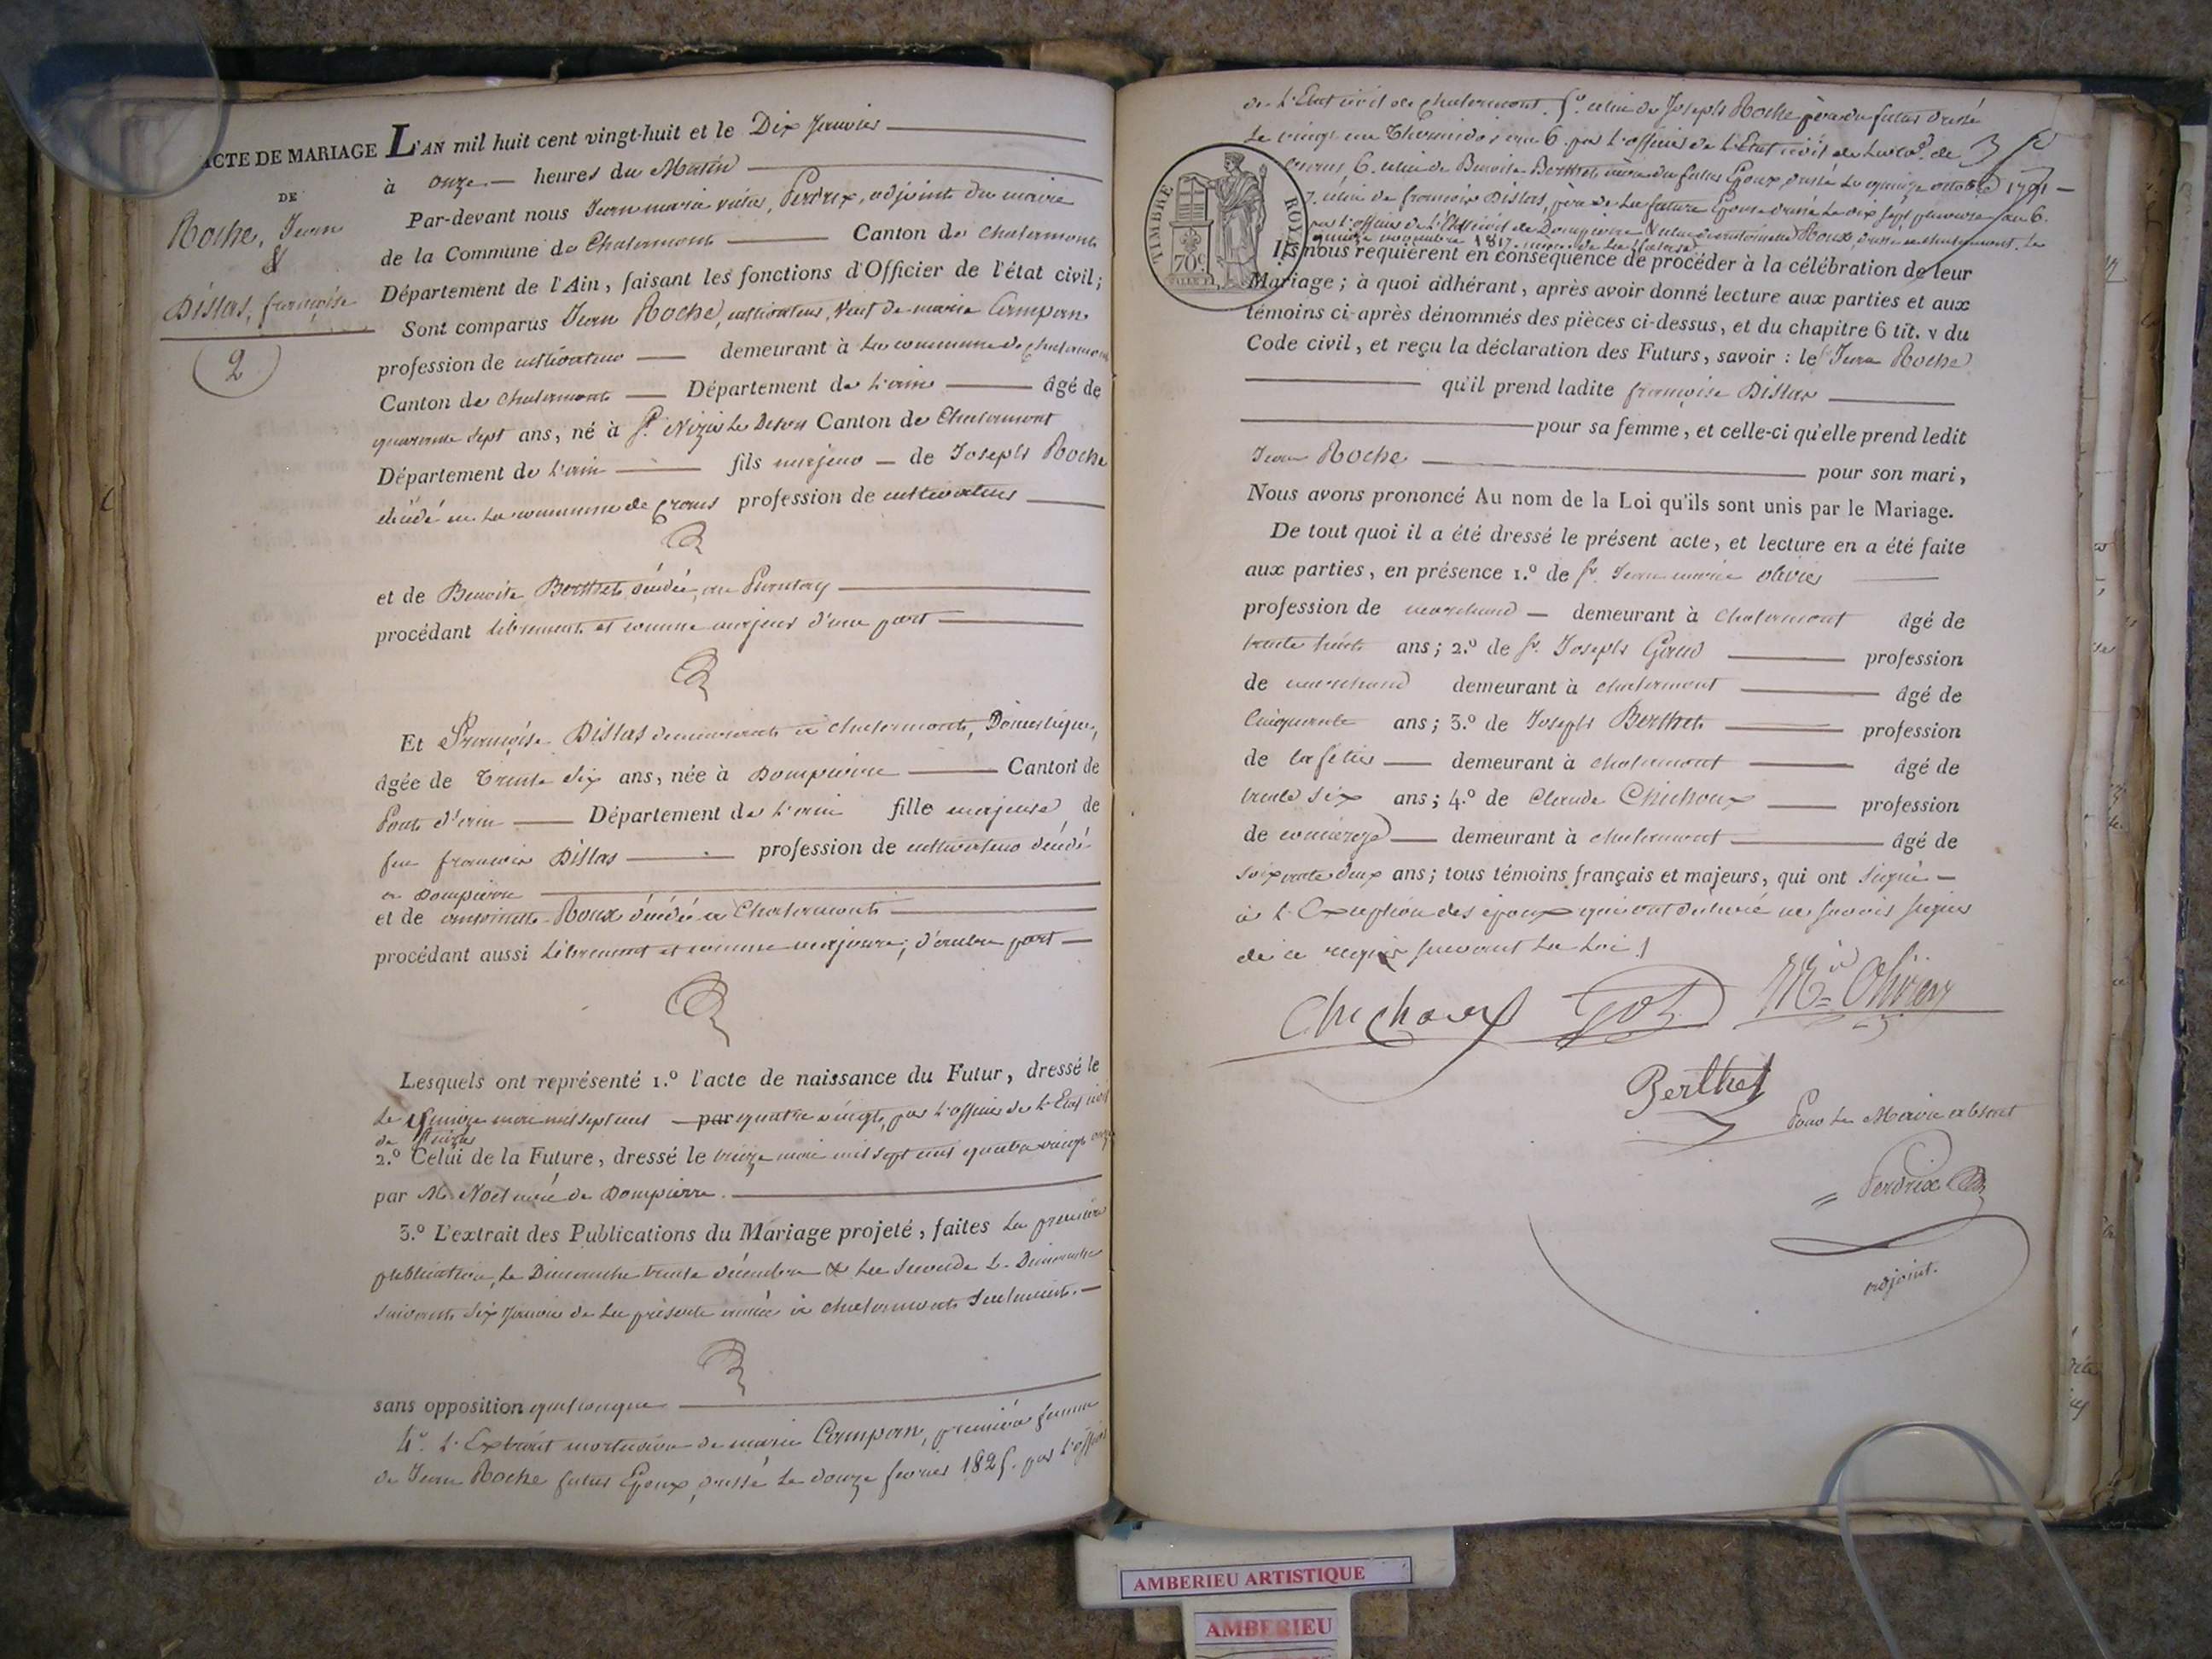 ACTE DE MARIAGE
DE
Roche, Jean
&
Dillas, françoise
2
L'AN mil huit cent vingt-huit et le Dix Janvier
à onze heures du Matin
Par-devant nous Jean marie Perdrix, adjoint du maire
de la Commune de Chalamont Canton de Chalamont
Département de l'Ain, faisant les fonctions d'Officier de l'état civil;
Sont comparus Jean Roche, cultivateur, Veuf de marie Campan
profession de cultivateur demeurant à la commune de Chalamont
Canton de Chalamont Département de l'ain âgé de
quarante sept ans, né à St. Nizier le Desert Canton de Chalamont
Département de l'ain fils majeur de Joseph Roche
décédé en la commune de Crans profession de cultivateur
et de Benoite Berthet, décédée, au Plantay
procédant librement et comme majeur d'une part
Et Françoise Dillas demeurant à Chalamont, Domestique,
âgée de Trente Six ans, née à Dompierre Canton de
Pont d'ain Département de l'ain fille majeure de
feu françois Dillas profession de cultivateur décédé
a Dompierre
et de antoinette Roux décédée a Chalamont
procédant aussi librement et comme majeure, d'autre part
Lesquels ont représenté 1.º l'acte de naissance du Futur, dressé le
Le quinze mai mil sept cent par quatre vingt, par l'officier de l'Etat civil
de St. nizier
2.º Celui de la Future, dressé le treize mai mil sept cent quatre vingt onze
par M. Noel curé de Dompierre.
3.º L'extrait des Publications du Mariage projeté, faites La première
publication, le Dimanche trente décembre & la seconde le Dimanche
suivant six Janvier de la présente année à chalamont seulement.
sans opposition quelconque
4º. L'Extrait mortuaire de marie Campan, première femme
de Jean Roche futur Epoux, dressé le douze fevrier 1825. par l'officier
de l'Etat civil de chalamont. 5º. celui de Joseph Roche père du futur dressé
Le vingt un Thermidor an 6. par l'officier de l'Etat civil de de
Crans 6. celui de Benoite Berthet mère du futur Epoux dressé le quinze octobre 1791
7. celui de françois Dillas, père de la future Epouse dressé le dix sept an 6.
par l'officier de l'Etat civil de Dompierre celui d'antoinette Roux, dressé à chalamont. le
quinze novembre 1817. mère de la future
TIMBRE ROYAL
70c
Ils nous requièrent en conséquence de procéder à la célébration de leur
Mariage; à quoi adhérant, après avoir donné lecture aux parties et aux
témoins ci-après dénommés des pièces ci-dessus, et du chapitre 6 tit. v du
Code civil, et reçu la déclaration des Futurs, savoir: le Jean Roche
qu'il prend ladite françoise Dillas
pour sa femme, et celle-ci qu'elle prend ledit
Jean Roche pour son mari,
Nous avons prononcé Au nom de la Loi qu'ils sont unis par le Mariage.
De tout quoi il a été dressé le présent acte, et lecture en a été faite
aux parties, en présence 1.º de Sr. Jean marie olivier
profession de marchand demeurant à Chalamont âgé de
trente huit ans; 2.º de Sr. Joseph profession
de marchand demeurant à chalamont âgé de
Cinquante ans; 3.º de Joseph Berthet profession
de cafetier demeurant à chalamont âgé de
trente six ans; 4.º de Claude Chichoux profession
de concierge demeurant à chalamont âgé de
soixante deux ans; tous témoins français et majeurs, qui ont signé
à l'Exception des époux qui ont déclaré ne savoir signer
de ce requis suivant la Loi
Chichoux
Mie Olivier
Berthet
Pour Le Maire absent
Perdrix
adjoint.
AMBERIEU ARTISTIQUE
AMBERIEU